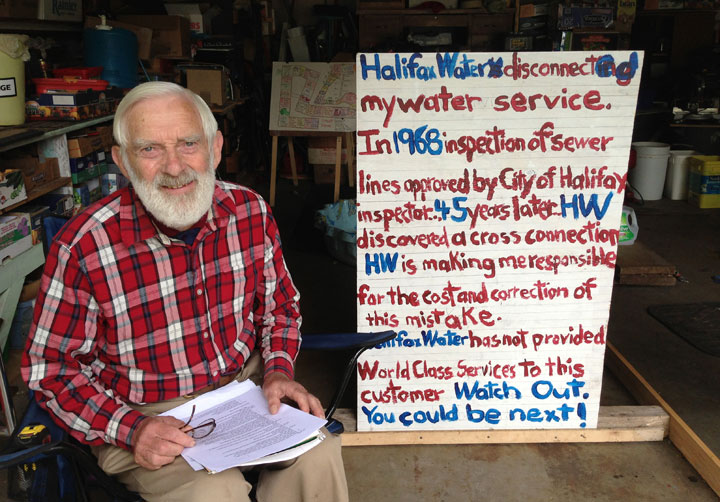 Halifax Water disconnected
my water service.
In 1968 inspection of sewer
lines approved by City of Halifax
inspector. 45 years later HW
discovered a cross connection
HW is making me responsible
for the cost and correction of
this mistake.
Halifax Water has not provided
World Class Services to this
customer Watch Out.
You could be next!